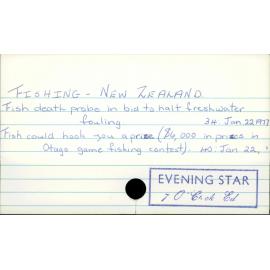 FISHING - NEW ZEALAND
Fish death probe in bid to halt freshwater
fouling. 3H. Jan. 22 1977
Fish could hook you a prize ($6,000 in prizes in
Otago game fishing contest). 40. Jan 22, '
EVENING STAR
7 O'Clock Ed